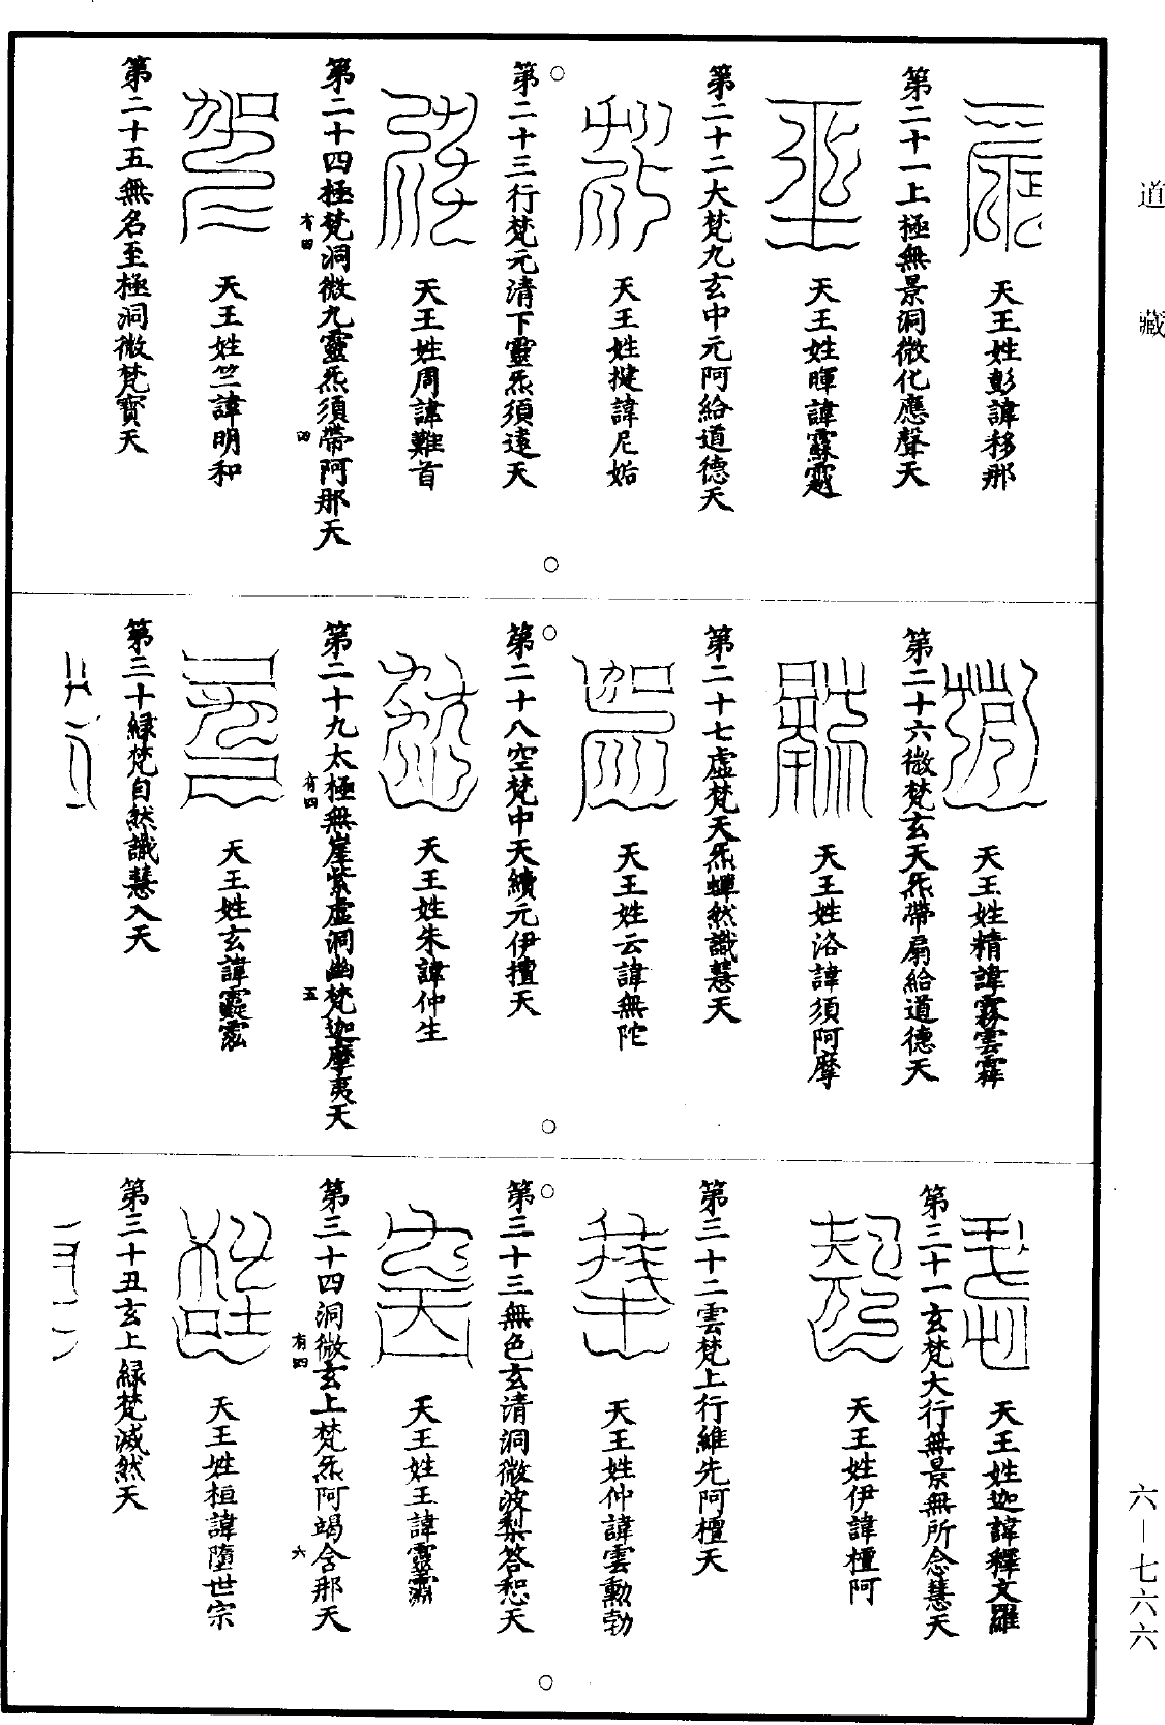 道藏
天王姓彭諱移那
第二十一上極無景洞微化應聲天
天王姓暉諱霖
第二十二大梵九玄中元阿給道德天
天王姓揵諱尼姤
第二十三行梵元清下靈炁須遠天
天王姓周諱難首
第二十四極梵洞微九靈炁須帶阿那天
有四
四
天王姓竺諱明和
第二十五無名至極洞微梵寶天
天王姓精諱雲霖
第二十六微梵玄天炁帶扇給道德天
天王姓洛諱須阿摩
第二十七虛梵天炁蟬然識慧天
天王姓云諱無陀
第二十八空梵中天續元伊檀天
天王姓朱諱仲生
第二十九太極無崖紫虛洞幽梵迦摩夷天
有四
五
天王姓玄諱
第三十綠梵自然識慧入天
天王姓迦諱釋文羅
第三十一玄梵大行無景無所念慧天
天王姓伊諱檀阿
第三十二雲梵上行維先阿檀天
天王姓仲諱雲勳勃
第三十三無色玄清洞微波梨答惒天
天王姓王諱
第三十四洞微玄上梵炁阿竭含那天
有四
六
天王姓桓諱墮世宗
第三十五玄上綠梵滅然天
六—七六六